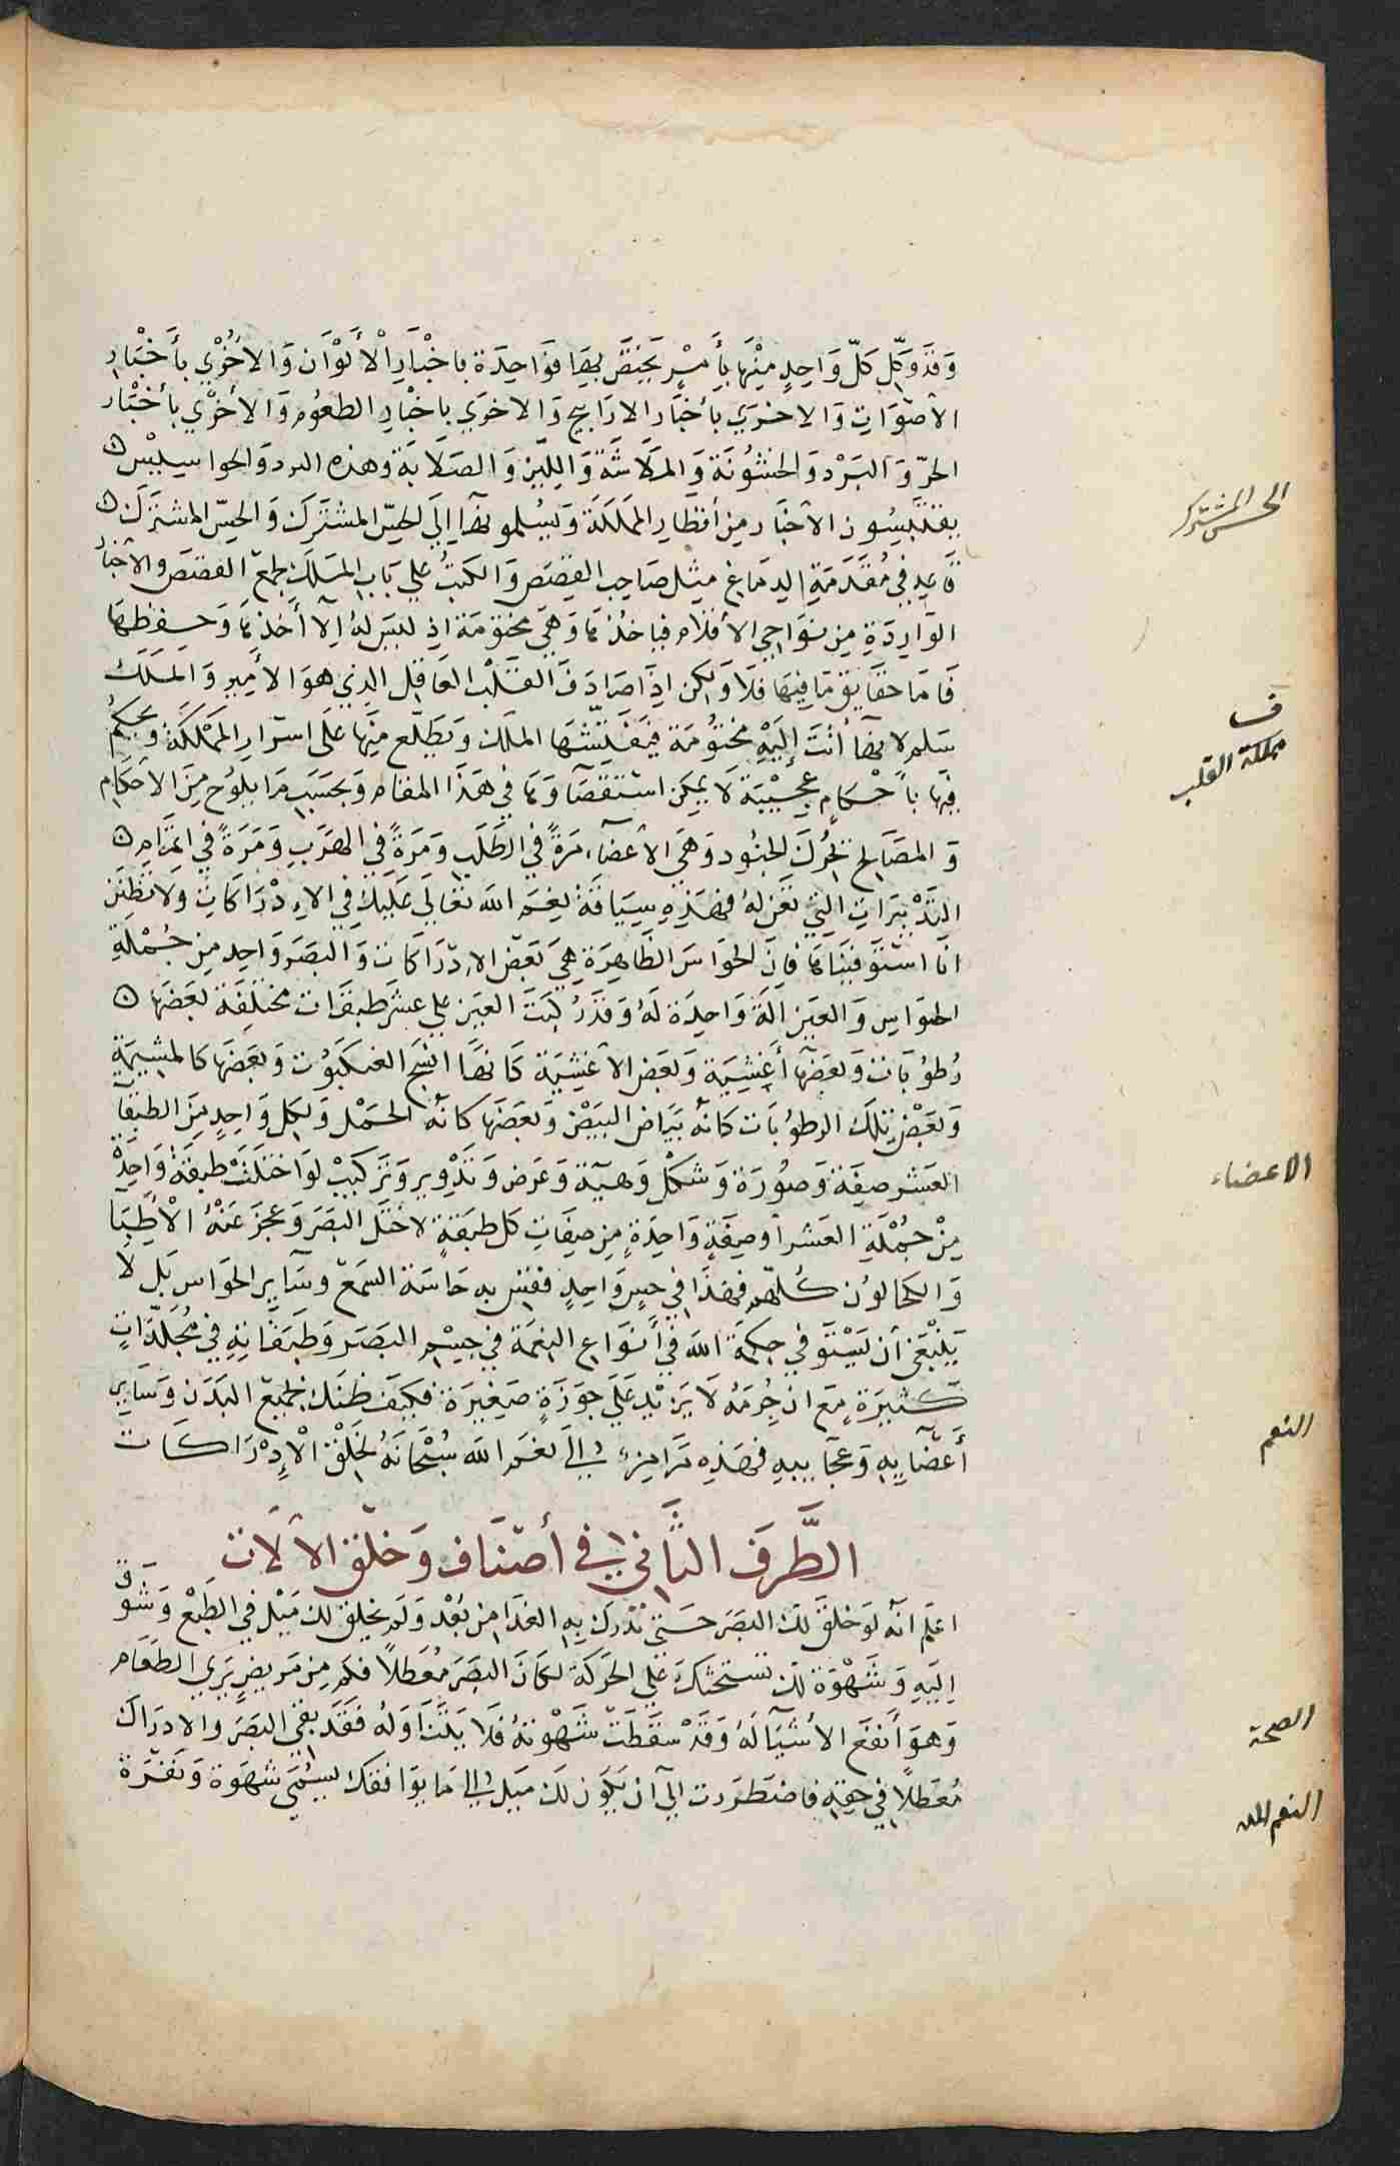 وقد وكل كل واحد منها بأمر يختص بها فواحدة باخبار الألوان والأخرى بأخبار
الأصوات والاخرى بأخبار الاراييح والاخرى باخبار الطعوم والأخرى بأخبار
الحر والبرد والخشونة والملاسة واللين والصلابة وهذه البرد والجواسيس
يقتنسون الأخبار من أقطار المملكة ويسلمونها إلى الحس المشترك والحس المشترك
قاعد في مقدمة الدماغ مثل صاحب القصص والكتب على باب الملك يجمع القصص والأخبار
الواردة من نواحي الأقلام فياخذها وهي مختومة اذ ليس له إلا أخذها وحفظها
فاما حقايق ما فيها فلا ولكن اذا صادف القلب العاقل الذي هو الأمير والملك
سلم لا نهاأنت إليه مختومة فيفتشها الملك ويطلع منها على اسرار المملكة ويحكم
فيها بأحكام عجيبة لا يمكن استقصآوها في هذا المقام وبحسب ما يلوح من الأحكام
والمصالح يحرك الجنود وهي الأعضآء مرة في الطلب ومرة في الهرب ومرة في اتمام
التدبيرات التي تعن له فهذه سياقة نعم الله تعالى عليك في الإدراكات ولا تظنن
انا استوفيناها فان الحواس الظاهرة هي بعض الإدراكات والبصر واحد من جملة
الحواس والعين آلة واحدة له وقد ركبت العين على عشر طبقات مختلفة بعضها
رطوبات وبعضها أغشية وبعض الأغشية كانها نسج العنكبوت وبعضها كالمشيمة
وبعض تلك الرطوبات كانه بياض البيض وبعضها كانه الحمل ولكل واحد من الطبقآ
العشر صفة وصورة وشكل وهيئة وعرض وتدوير وتركيب لو اختلت طبقة واحدة
من جملة العشر أو صفة واحدة من صفات كل طبقة لاختل البصر وعجز عنه الأطبا
والكحالون كلهم فهذا في حس واحد فقس به حاسة السمع وساير الحواس بل لا
ينبغي أن يستوفى حكمة الله في أنواع النعمة في جسم البصر وطبقاته في مجلدات
كثيرة مع ان جرمه لا يزيد على جوزة صغيرة فكيف ظنك بجميع البدن وساير
أعضآيه وعجاييبه فهذه مرامز إلى نعم الله سبحانه بخلق الإدراكات
الطرف الثاني في أصناف وخلق الآلات
اعلم انه لو خلق لك البصر حتى تدرك به الغذا من بعد ولم يخلق لك ميل في الطبع وشوق
إليه وشهوة لك تستحثك على الحركة لكان البصر معطلا فكم من مريض يرى الطعام
وهو أنفع الأشيآ له وقد سقطت شهوته فلا يتناوله فقد بقى البصر والادراك
معطلا في حقه فاضطررت إلى أن يكون لك ميل إلى ما يوافقك يسمى شهوة ونفرة
الحس المشترك
ف
مملكة القلب
الاعضاء
النعم
الصحة
النعم